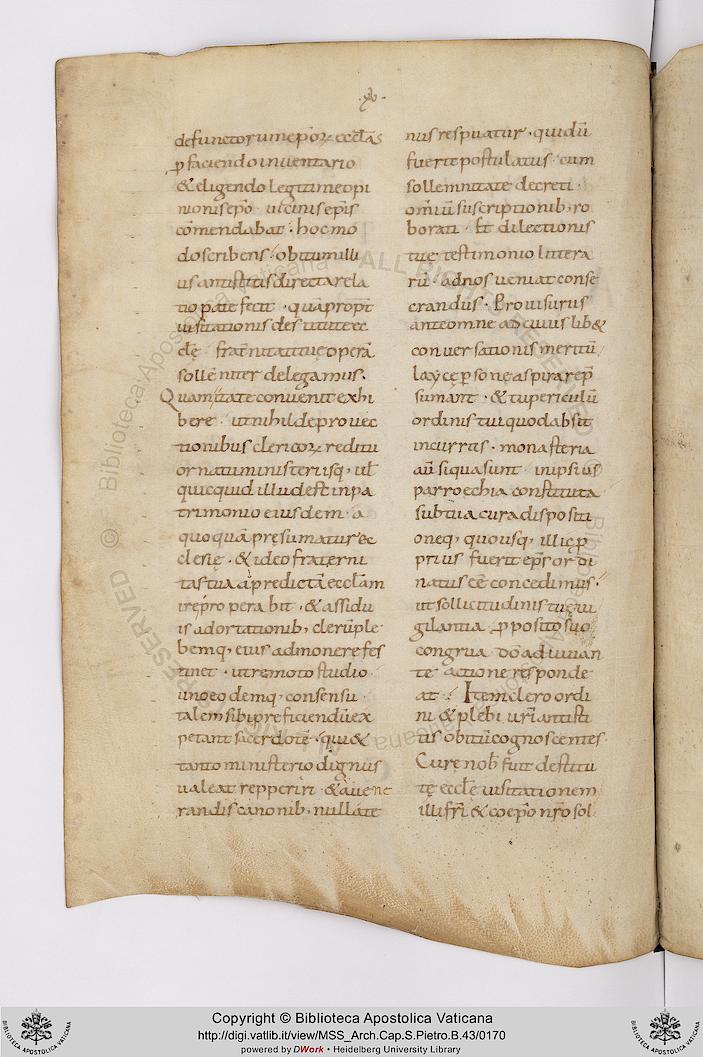 ·xv·
defunctorum ep̄oꝝ eccl̄as
ꝓ faciendo inventario
& eligendo legitime opi
nionis ep̄o · vicinis ep̄is
cōmendabat · hoc mo
do scribens · obitum illi
us antistitis directa rela
tio patefecit · quapropt̄
visitationis destitute ec
cl̄ę frat̄nitati tuę operā
sollēniter delegamus.
Qua ita te convenit exhi
bere · ut nihil de provec
tionibus clericoꝝ reditu
ornatu ministeriisq; vl̄
quicquid illud est in pa
trimonio eiusdem · a
quoquā pręsumatur ec
clesię · & ideo fraterni
tas tua ad predictā eccl̄am
ire ꝓperabit · & assidu
is adortationib; clerū ple
bemq; eius admonere fes
tinet · ut remoto studio
uno eodemq; consensu
talem sibi preficiendū ex
petant sacerdotē · qui &
tanto ministerio dignus
valeat repperiri · & a vene
randis canonib; nulla te
nus respuatur · qui dū
fuerit postulatus · cum
sollemnitate decreti ·
om̄iū suscriptionib; ro
borati · Et dilectionis
tuę testimonio littera
rū · ad nos veniat conse
crandus · Provisurus
ante omne ad cuius lib&
conversationis meritū
laycę ꝑsonę aspirare p̄
sumant · & tu periculū
ordinis tui quod absit
incurras · monasteria
aū siqua sunt · in ipsius
parroechia constituta
sub tua cura dispositi
oneq; quousq; illic ꝓ
prius fuerit ep̄s ordi
natus eē concedimus ·
ut sollicitudinis tuę vi
gilantia ꝓposito suo
congrua dō adiuvan
te actione responde
at · Item clero ordi
ni & plebi vr̄i antisti
tis obitū cognoscentes ·
Curę nob̄ fuit destitu
tę eccl̄e visitationem
illi fr̄i & coep̄o nr̄o sol
Copyright © Biblioteca Apostolica Vaticana
http://digi.vatlib.it/view/MSS_Arch.Cap.S.Pietro.B.43/0170
powered by DWork • Heidelberg University Library